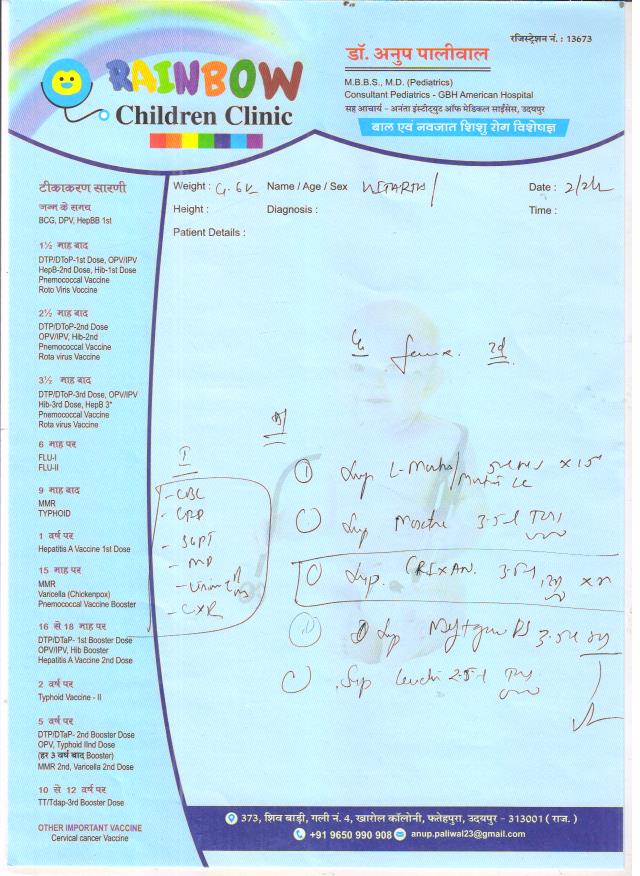 रजिस्ट्रेशन नं. : 13673
डॉ. अनुप पालीवाल
RAINBOW
Children Clinic
M.B.B.S., M.D. (Pediatrics)
Consultant Pediatrics - GBH American Hospital
सह आचार्य - अनंता इंस्टीट्युट ऑफ मेडिकल साईंसेस, उदयपुर
बाल एवं नवजात शिशु रोग विशेषज्ञ
टीकाकरण सारणी
जन्म के समय
BCG, DPV, HepBB 1st
1½ माह बाद
DTP/DToP-1st Dose, OPV/IPV
HepB-2nd Dose, Hib-1st Dose
Pnemococcal Vaccine
Roto Viris Voccine
2½ माह बाद
DTP/DToP-2nd Dose
OPV/IPV, Hib-2nd
Pnemococcal Vaccine
Rota virus Vaccine
3½ माह बाद
DTP/DToP-3rd Dose, OPV/IPV
Hib-3rd Dose, HepB 3*
Pnemococcal Vaccine
Rota virus Vaccine
6 माह पर
FLU-I
FLU-II
9 माह बाद
MMR
TYPHOID
1 वर्ष पर
Hepatitis A Vaccine 1st Dose
15 माह पर
MMR
Varicella (Chickenpox)
Pnemococcal Vaccine Booster
16 से 18 माह पर
DTP/DTaP- 1st Booster Dose
OPV/IPV, Hib Booster
Hepatitis A Vaccine 2nd Dose
2 वर्ष पर
Typhoid Vaccine - II
5 वर्ष पर
DTP/DTaP- 2nd Booster Dose
OPV, Typhoid IInd Dose
(हर 3 वर्ष बाद Booster)
MMR 2nd, Varicella 2nd Dose
10 से 12 वर्ष पर
TT/Tdap-3rd Booster Dose
OTHER IMPORTANT VACCINE
Cervical cancer Vaccine
Weight : Name / Age / Sex Date :
Height : Diagnosis : Time :
Patient Details :
I
- CBC
- CRP
- SGPT
- MP
- CXR
Syp
Syp
Syp. CRIXAN
Syp
Syp
373, शिव बाड़ी, गली नं. 4, खारोल कॉलोनी, फतेहपुरा, उदयपुर - 313001 ( राज. )
+91 9650 990 908 anup.paliwal23@gmail.com